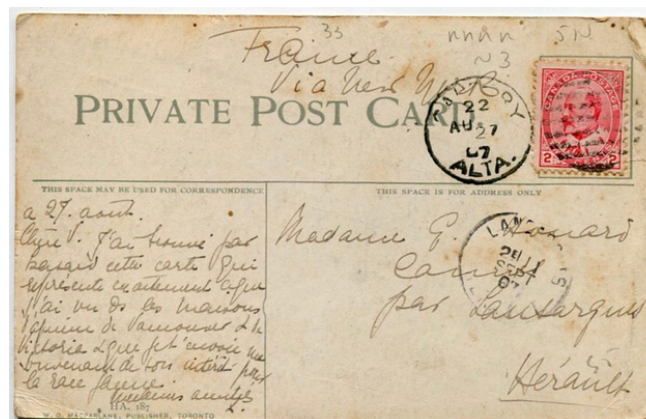 33
France
via New York
PRIVATE POST CARD.
22
AU 27
07
ALTA.
CANADA POSTAGE
2 2
THIS SPACE MAY BE USED FOR CORRESPONDENCE
THIS SPACE IS FOR ADDRESS ONLY
a 27. août.
Chère V. J'ai trouvé par
hasard cette carte qui
représente exactement ce que
j'ai vu ds les maisons
d'opium de Vancouver &
Victoria & que je t'envoie
souvenir de ton intérêt pour
la race jaune.
HA. 187
W. G. MACFARLANE, PUBLISHER, TORONTO
Madame E.
par Lansargues
Hérault
SEPT
07